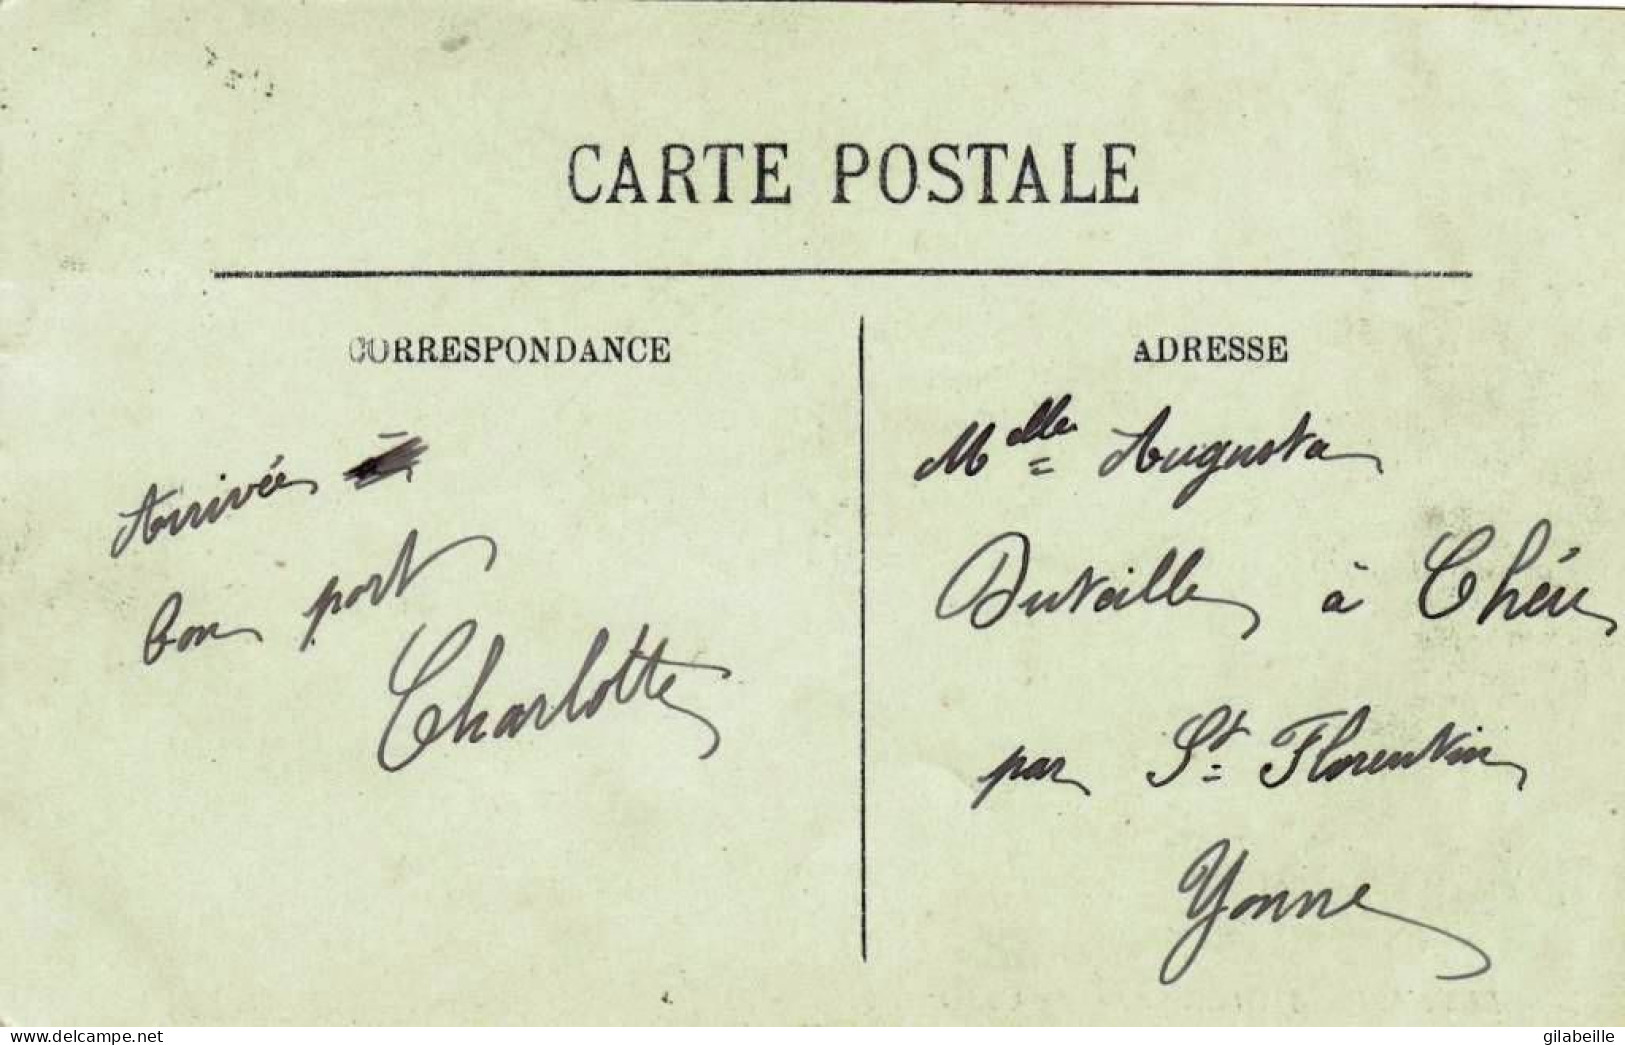 CARTE POSTALE
CORRESPONDANCE
Arrivée à
bon port
Charlotte
ADRESSE
Melle Augusta
Duteille à Chéu
par St Florentin
Yonne
delcampe.net
gilabeille